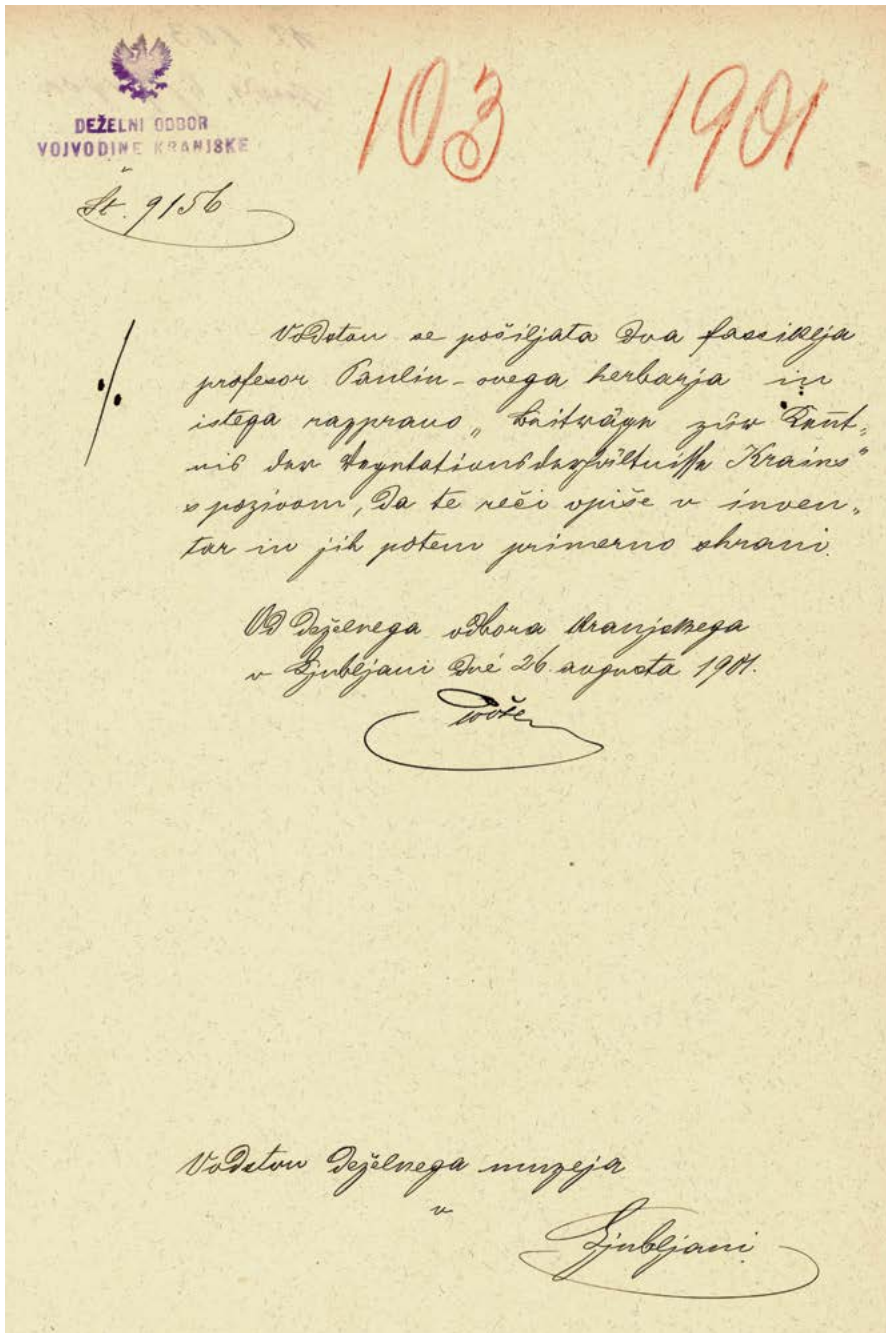 DEŽELNI ODBOR
VOJVODINE KRANJSKE
103 1901
Št. 9156
Vodstvu se pošiljata dva fascikelja
profesor Paulin-ovega herbarja in
istega razpravo „Beiträge zur Kent-
nis der Vegetationsverhältnisse Krains"
s pozivom, da te reči vpiše v inven-
tar in jih potem primerno shrani.
Od deželnega odbora kranjskega
v Ljubljani dné 26. avgusta 1901.
Vodstvu deželnega muzeja
v
Ljubljani